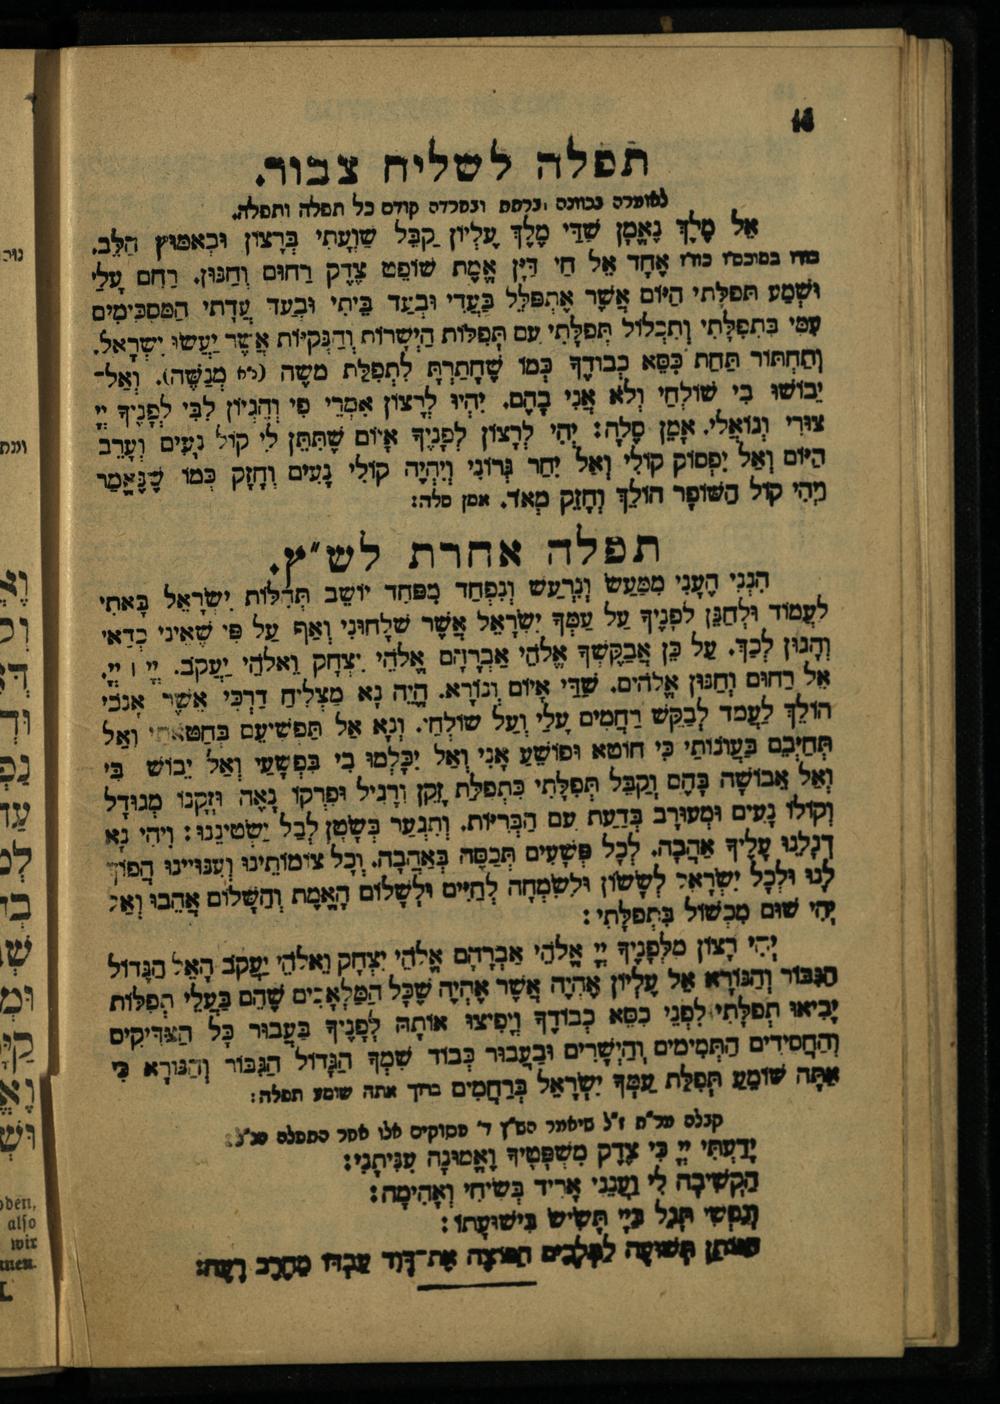 14
תפלה לשליח צבור.
לאומרה בכוונה וברתת ובסרדה קודם כל תפלה ותפלה.
אֵל מֶלֶךְ נֶאֱמָן שַׁדַּי מֶלֶךְ עֶלְיוֹן קַבֵּל שַׁוְעָתִי בְּרָצוֹן וּבְאִמּוּץ הַלֵּב.
אֶחָד אֵל חַי דַּיָּן אֱמֶת שׁוֹפֵט צֶדֶק רַחוּם וְחַנּוּן. רַחֵם עָלַי
וּשְׁמַע תְּפִלָּתִי הַיּוֹם אֲשֶׁר אֶתְפַּלֵּל בַּעֲדִי וּבְעַד בֵּיתִי וּבְעַד עֲדָתִי הַמַּסְכִּימִים
עִמִּי בִּתְפִלָּתִי וְתִכְלוֹל תְּפִלָּתִי עִם תְּפִלּוֹת הַיְשָׁרוֹת וְהַנְּקִיּוֹת אֲשֶׁר יַעֲשׂוּ יִשְׂרָאֵל.
וְתַחְתּוֹר תַּחַת כִּסֵּא כְבוֹדֶךָ כְּמוֹ שֶׁחָתַרְתָּ לִתְפִלַּת מֹשֶׁה (נ״א מְנַשֶּׁה). וְאַל־
יֵבוֹשׁוּ בִי שׁוֹלְחַי וְלֹא אֲנִי בָהֶם. יִהְיוּ לְרָצוֹן אִמְרֵי פִי וְהֶגְיוֹן לִבִּי לְפָנֶיךָ יְיָ
צוּרִי וְגוֹאֲלִי. אָמֵן סֶלָה: יְהִי לְרָצוֹן לְפָנֶיךָ אָיוֹם שֶׁתִּתֵּן לִי קוֹל נָעִים וְעָרֵב
הַיּוֹם וְאַל יִפְסוֹק קוֹלִי וְאַל יִחַר גְּרוֹנִי וְיִהְיֶה קוֹלִי נָעִים וְחָזָק כְּמוֹ שֶׁנֶּאֱמַר
וַיְהִי קוֹל הַשּׁוֹפָר הוֹלֵךְ וְחָזֵק מְאֹד. אמן סלה:
תפלה אחרת לש״ץ.
הִנְנִי הֶעָנִי מִמַּעַשׂ וְנִרְעַשׁ וְנִפְחַד מִפַּחַד יוֹשֵׁב תְּהִלּוֹת יִשְׂרָאֵל בָּאתִי
לַעֲמוֹד וּלְחַנֵּן לְפָנֶיךָ עַל עַמְּךָ יִשְׂרָאֵל אֲשֶׁר שְׁלָחוּנִי וְאַף עַל פִּי שֶׁאֵינִי כְדַאי
וְהָגוּן לְכַךְ. עַל כֵּן אֲבַקֶּשְׁךָ אֱלֹהֵי אַבְרָהָם אֱלֹהֵי יִצְחָק וֵאלֹהֵי יַעֲקֹב. יְיָ ׀ יְיָ.
אֵל רַחוּם וְחַנּוּן אֱלֹהִים. שַׁדַּי אָיוֹם וְנוֹרָא. הֱיֵה נָא מַצְלִיחַ דַּרְכִּי אֲשֶׁר אָנֹכִי
הוֹלֵךְ לַעֲמֹד לְבַקֵּשׁ רַחֲמִים עָלַי וְעַל שׁוֹלְחַי. וְנָא אַל תַּפְשִׁיעֵם בְּחַטֹּאתַי וְאַל
תְּחַיְּבֵם בַּעֲוֹנוֹתַי כִּי חוֹטֵא וּפוֹשֵׁעַ אָנִי וְאַל יִכָּלְמוּ בִי בִּפְשָׁעַי וְאַל יֵבוֹשׁוּ בִי
וְאַל אֵבוֹשָׁה בָּהֶם וְקַבֵּל תְּפִלָּתִי כִּתְפִלַּת זָקֵן וְרָגִיל וּפִרְקוֹ נָאֶה וּזְקָנוֹ מְגוּדָּל
וְקוֹלוֹ נָעִים וּמְעוּרָב בְּדַעַת עִם הַבְּרִיּוֹת. וְתִגְעַר בְּשָׂטָן לְבַל יַשְׂטִינֵנוּ: וִיהִי נָא
דִגְלֵנוּ עָלֶיךָ אַהֲבָה. לְכָל פְּשָׁעִים תְּכַסֶּה בְּאַהֲבָה. וְכָל צוֹמוֹתֵינוּ וְעִנּוּיֵינוּ הֲפוֹךְ
לָנוּ וּלְכָל יִשְׂרָאֵל לְשָׂשׂוֹן וּלְשִׂמְחָה לְחַיִּים וּלְשָׁלוֹם הָאֱמֶת וְהַשָּׁלוֹם אֱהֵבוּ וְאַל
יְהִי שׁוּם מִכְשׁוֹל בִּתְפִלָּתִי:
יְהִי רָצוֹן מִלְּפָנֶיךָ יְיָ אֱלֹהֵי אַבְרָהָם אֱלֹהֵי יִצְחָק וֵאלֹהֵי יַעֲקֹב הָאֵל הַגָּדוֹל
הַגִּבּוֹר וְהַנּוֹרָא אֵל עֶלְיוֹן אֶהְיֶה אֲשֶׁר אֶהְיֶה שֶׁכָּל הַמַּלְאָכִים שֶׁהֵם בַּעֲלֵי תְפִלּוֹת
יָבִיאוּ תְפִלָּתִי לִפְנֵי כִסֵּא כְבוֹדֶךָ וְיָפִיצוּ אוֹתָהּ לְפָנֶיךָ בַּעֲבוּר כָּל הַצַּדִּיקִים
וְהַחֲסִידִים הַתְּמִימִים וְהַיְשָׁרִים וּבַעֲבוּר כְּבוֹד שִׁמְךָ הַגָּדוֹל הַגִּבּוֹר וְהַנּוֹרָא כִּי
אַתָּה שׁוֹמֵעַ תְּפִלַּת עַמְּךָ יִשְׂרָאֵל בְּרַחֲמִים ברוך אתה שומע תפלה:
קבלה ז״ל שיאמר הש״ץ ד׳ פסוקים אלו אחר התפלה
יָדַעְתִּי יְיָ כִּי צֶדֶק מִשְׁפָּטֶיךָ וֶאֱמוּנָה עִנִּיתָנִי:
הַקְשִׁיבָה לִי וַעֲנֵנִי אָרִיד בְּשִׂיחִי וְאָהִימָה:
וְנַפְשִׁי תָּגֵל בַּיְיָ תָּשִׂישׂ בִּישׁוּעָתוֹ:
הַנּוֹתֵן תְּשׁוּעָה לַמְּלָכִים הַפּוֹצֶה אֶת־דָּוִד עַבְדּוֹ מֵחֶרֶב רָעָה: